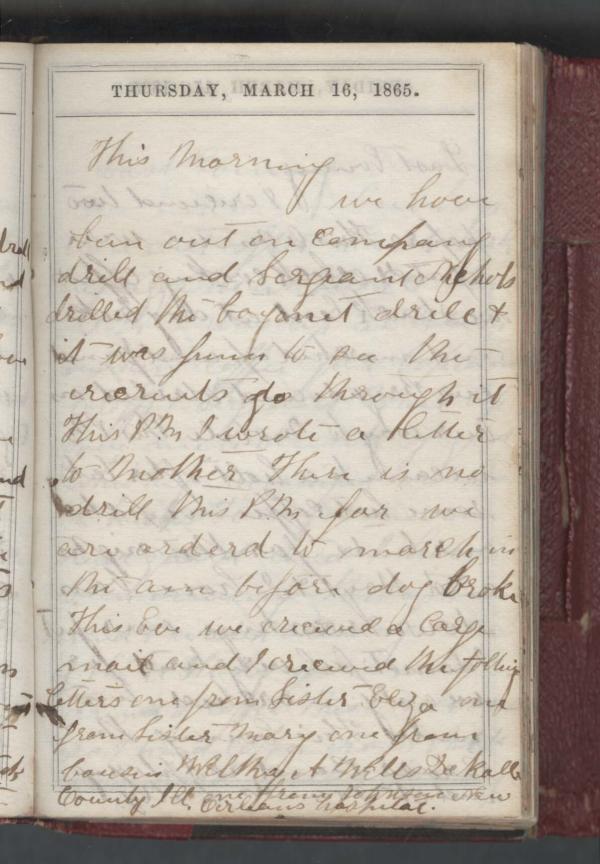 THURSDAY, MARCH 16, 1865.
This Morning
we have
ban out on Company
drill and Sergeant Nichols
drilled the bayonet drill &
it was funn to see the
recruits go through it
This P.M I wrote a letter
to Mother There is no
drill this P.M. for we
are orderd to march in
the am before day broke
This Eve we received a large
mail and I received the follwing
letters one from Sister Eliza one
from Sister Mary one from
cousin Wells DeKalb
County Ill, one from Johnson New
Orleans hospital.